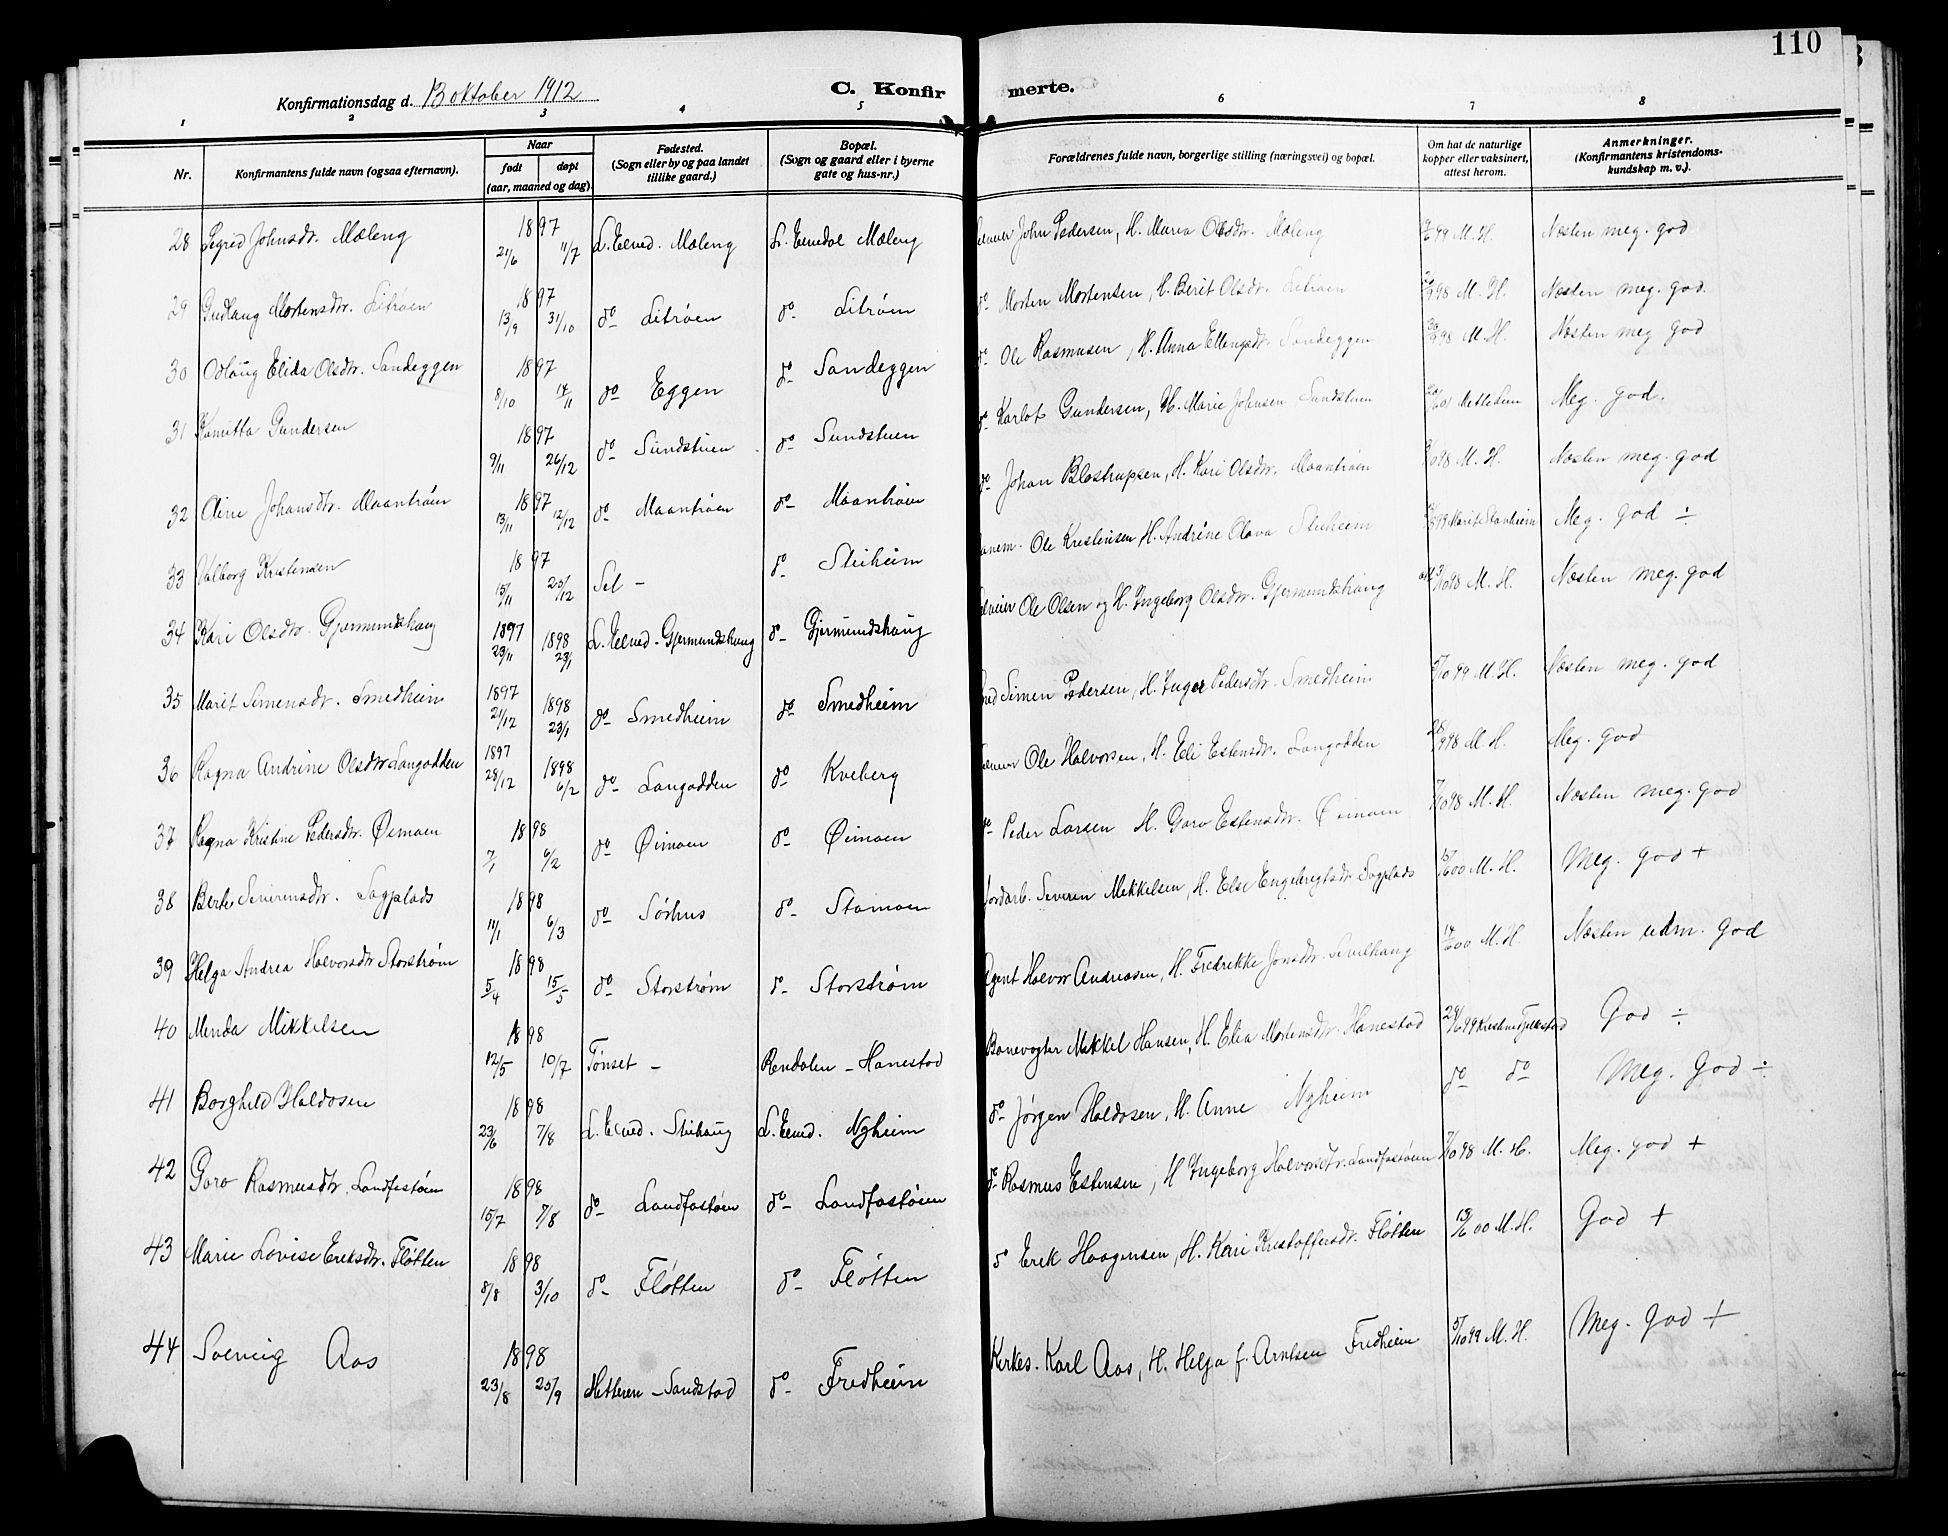 110
Konfirmationsdag d. 13 oktober 1912
C. Konfirmerte.
1 2 3 4 5 6 7 8
Nr. Konfirmantens fulde navn (ogsaa efternavn). Naar født døpt (aar, maaned og dag) Fødested. (Sogn eller by og paa landet tillike gaard.) Bopæl. (Sogn og gaard eller i byerne gate og hus-nr.) Forældrenes fulde navn, borgerlige stilling (næringsvei) og bopæl. Om har de naturlige kopper eller vaksinert, attest herom. Anmerkninger. (Konfirmantens kristendoms-kundskap m. v.).
28 Sigrid Johnsdr. Mæleng 1897 21/6 11/7 L. Elved. Mæleng L. Elvedal Mæleng John Pedersen, H. Maria Olsdtr. Mæleng 99 M. H. Næsten meg. god
29 Gudlaug Mortensdtr. Litrøen 1897 13/9 31/10 do Litrøen do Litrøen do Morten Mortensen, H. Berit Olsdr. Litrøen 98 M. H. Næsten meg. god.
30 Odlaug Elida Olsdtr. Sandeggen 1897 8/10 14/11 do Eggen do Sandeggen do Ole Rasmusen, H. Anna Ellengsdr. Sandeggen 98 M. H. Næsten meg god
31 Kamitta Gundersen 1897 9/11 26/12 do Sundstuen do Sundstuen do Karlot Gundersen, H. Marie Johnsen Sundstuen Meg. god.
32 Oline Johansdtr. Maantrøen 1897 13/11 12/12 do Maantrøen do Maantrøen do Johan Blostrupsen, H. Kari Olsdtr. Maantrøen 98 M. H. Næsten meg. god
33 Valborg Kristensen 1897 15/11 25/12 Sel - do Stuheim Ole Kristensen H. Andrine Olava Stuheim 99 Meg. god ÷
34 Kari Olsdtr Gjermundshaug 1897 23/11 1898 23/1 L. Elved - Gjermundshaug do Gjermundshaug Ole Olsen og H. Ingeborg Olsdtr. Gjermundshaug 98 M. H. Næsten meg. god
35 Marit Simensdr. Smedheim 1897 21/12 1898 23/1 do Smedheim do Smedheim Simen Pedersen, H. Inger Pedersdtr. Smedheim 99 M. H. Næsten meg. god
36 Ragna Andrine Olsdtr Langodden 1897 28/12 1898 6/2 do Langodden do Kveberg Ole Halvorsen, H. Eli Estensdtr. Langodden 98 M. H. Meg. god
37 Ragna Kristine Pedersdtr. Øimoen 1898 7/1 6/2 do Øimoen do Øimoen do Peder Larsen H. Goro Estensdtr. Øimoen 98 M. H. Næsten meg. god
38 Berte Severensdtr. Sagplads 1898 11/1 6/3 do Sørhus do Stamoen Jordarb. Severen Mikkelsen, H. Else Engebregtsdr. Sagplads 00 M. H. Meg. god +
39 Helga Andrea Halvorsdtr Storstrøm 1898 5/4 15/5 do Storstrøm do Storstrøm Agent Halvor Andreasen, H. Fredrikke Jonsdtr. 00 M. H. Næsten udm. god
40 Menda Mikkelsen 1898 12/5 10/7 Tønset - Rendalen - Hanestad Banevogter Mikkel Hansen, H. Elia Mortensdtr. Hanestad 99 God ÷
41 Borghild Haldosen 1898 23/6 7/8 L. Elved. Stuhaug L. Elved. Nyheim do Jørgen Haldosen, H. Anne Nyheim do do Meg. god ÷
42 Goro Rasmusdtr. Landfastøien 1898 15/7 7/8 do Landfastøien do Landfastøien do Rasmus Estensen, H Ingeborg Halvorsdtr. Landfastøien 98 M. H. Meg. god +
43 Marie Lovise Eriksdtr. Fløtten 1898 8/8 3/10 do Fløtten do Fløtten do Erik Haagensen, H. Kari Kristoffersdtr. Fløtten 00 M. H. God +
44 Solveig Aas 1898 23/8 25/9 Hitteren - Sandstad do Fredheim Kirkes. Karl Aas, H. Helga f. Arntsen Fredheim 5/10 99 M. H. Meg. god +